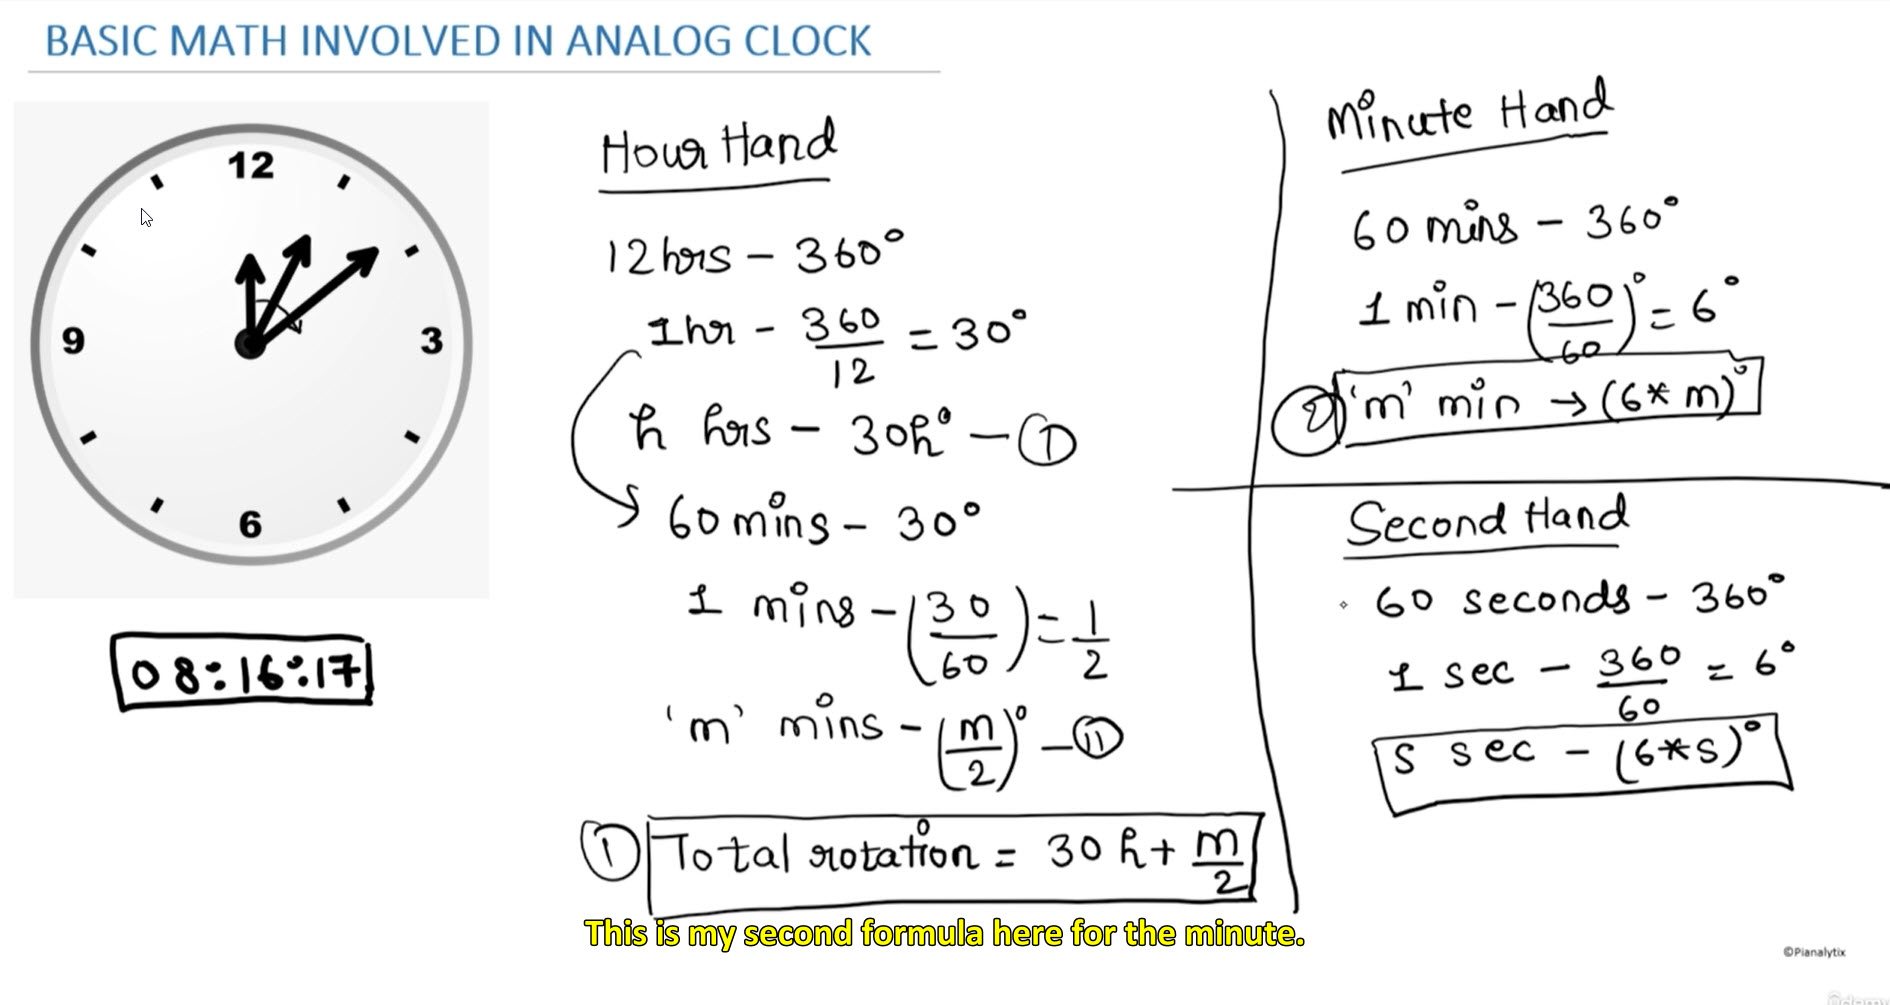 BASIC MATH INVOLVED IN ANALOG CLOCK
12
9
3
6
08:16:17
Hour Hand
12hrs - 360°
1hr - 360/12 = 30°
h hrs - 30h° - ①
60 mins - 30°
1 mins - (30/60) = 1/2
'm' mins - (m/2)° - ⑪
① Total rotation = 30h + m/2
Minute Hand
60 mins - 360°
1 min - (360/60)° = 6°
② 'm' min → (6* m)°
Second Hand
60 seconds - 360°
1 sec - 360/60 = 6°
s sec - (6*s)°
This is my second formula here for the minute.
©Pianalytix